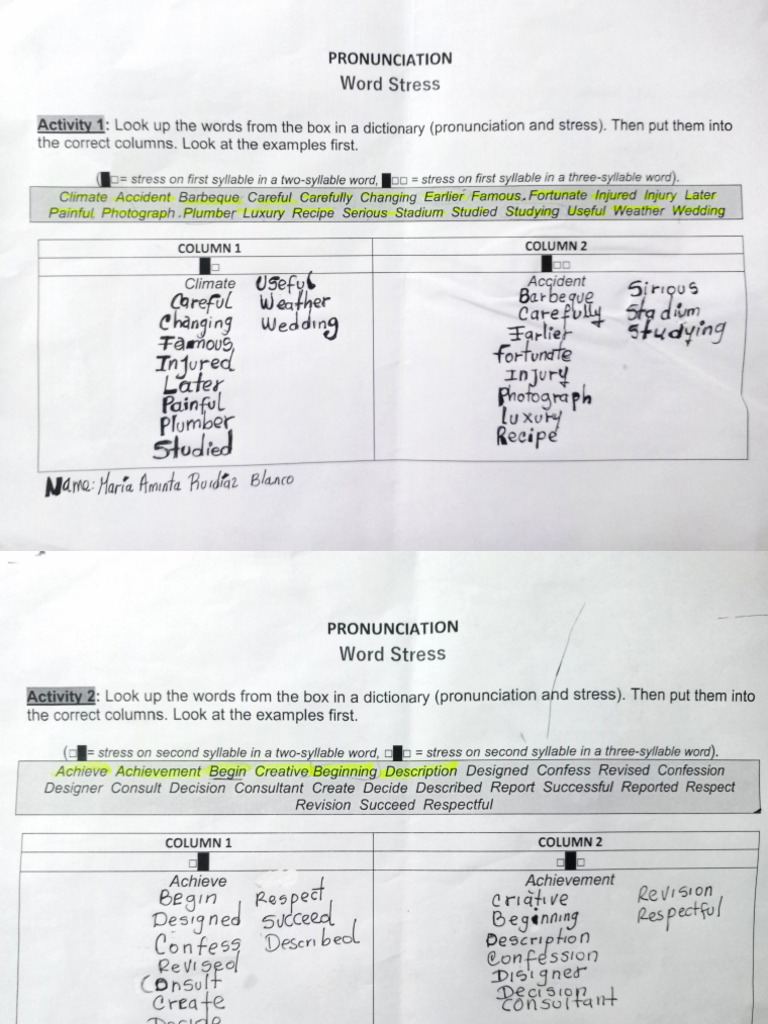 PRONUNCIATION
Word Stress
Activity 1: Look up the words from the box in a dictionary (pronunciation and stress). Then put them into
the correct columns. Look at the examples first.
(■□= stress on first syllable in a two-syllable word, ■□□ = stress on first syllable in a three-syllable word).
Climate Accident Barbeque Careful Carefully Changing Earlier Famous Fortunate Injured Injury Later
Painful Photograph Plumber Luxury Recipe Serious Stadium Studied Studying Useful Weather Wedding
COLUMN 1
■□
Climate Useful
Careful Weather
Changing Wedding
Famous
Injured
Later
Painful
Plumber
Studied
COLUMN 2
■□□
Accident Sirious
Barbeque Stadium
Carefully Studying
Earlier
Fortunate
Injury
Photograph
Luxury
Recipe
Name: María Aminta Ruidíaz Blanco
PRONUNCIATION
Word Stress
Activity 2: Look up the words from the box in a dictionary (pronunciation and stress). Then put them into
the correct columns. Look at the examples first.
(□■= stress on second syllable in a two-syllable word, □■□ = stress on second syllable in a three-syllable word).
Achieve Achievement Begin Creative Beginning Description Designed Confess Revised Confession
Designer Consult Decision Consultant Create Decide Described Report Successful Reported Respect
Revision Succeed Respectful
COLUMN 1
□■
Achieve
Begin Respect
Designed Succeed
Confess Described
Revised
Consult
Create
Decide
COLUMN 2
□■□
Achievement
Criative Revision
Beginning Respectful
Description
Confession
Disigner
Decision
Consultant